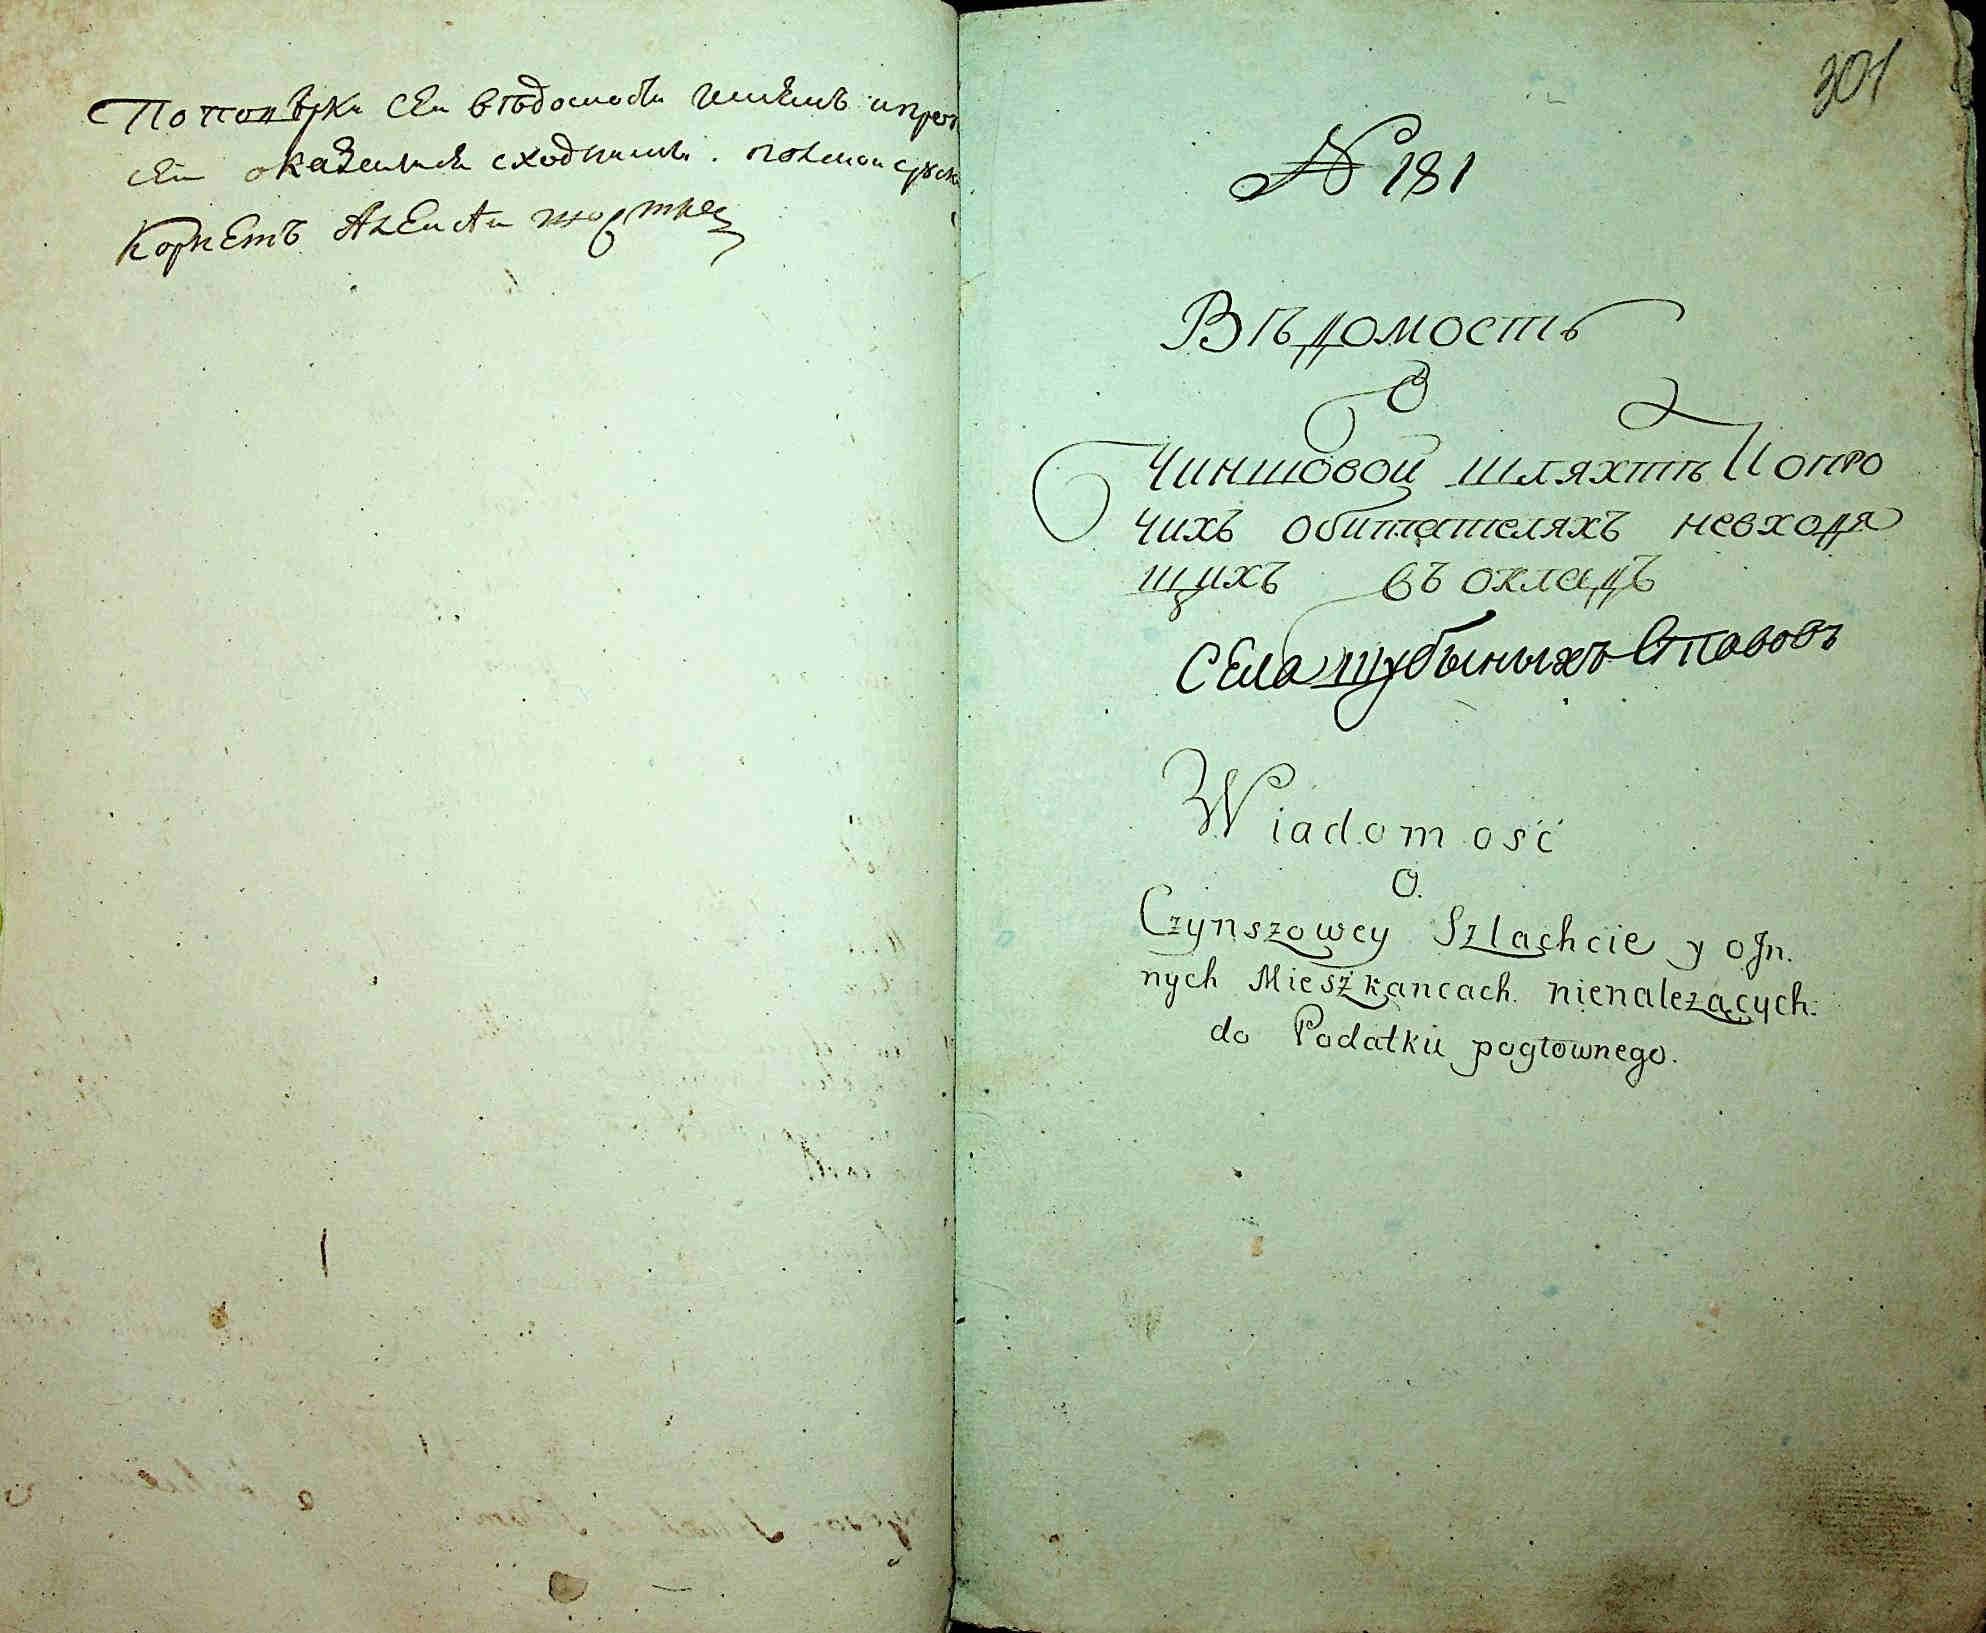 По поверки сеи ведомости
сеи оказались сходными.
Корнетъ Алексеи
301
№ 181
Вѣдомость
О
Чиншовой шляхтѣ И опро
чихъ обитателяхъ невходя
щихъ въ окладъ
Села Шубыныхъ Ставовъ
Wiadomość
O.
Czynszowey Szlachcie y o Jn.
nych Mieszkancach. nienalezących.
do Podatku pogłownego.